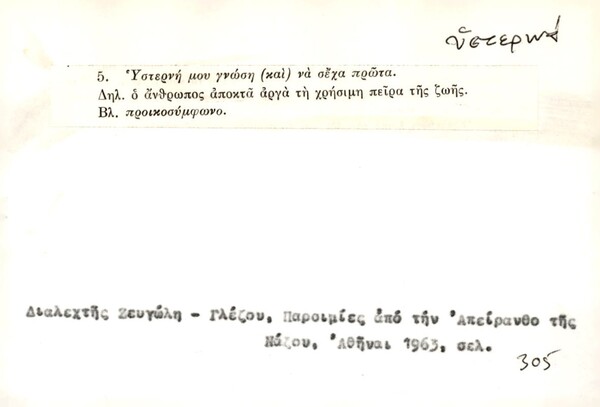 ὕστερνά
5. Ὑστερνή μου γνώση (καὶ) νὰ σἔχα πρῶτα.
Δηλ. ὁ ἄνθρωπος ἀποκτᾶ ἀργὰ τὴ χρήσιμη πεῖρα τῆς ζωῆς.
Βλ. προικοσύμφωνο.
Διαλεχτῆς Ζευγώλη - Γλέζου, Παροιμίες ἀπό τήν Ἀπείρανθο τῆς
Νάξου, Ἀθῆναι 1963, σελ.
305